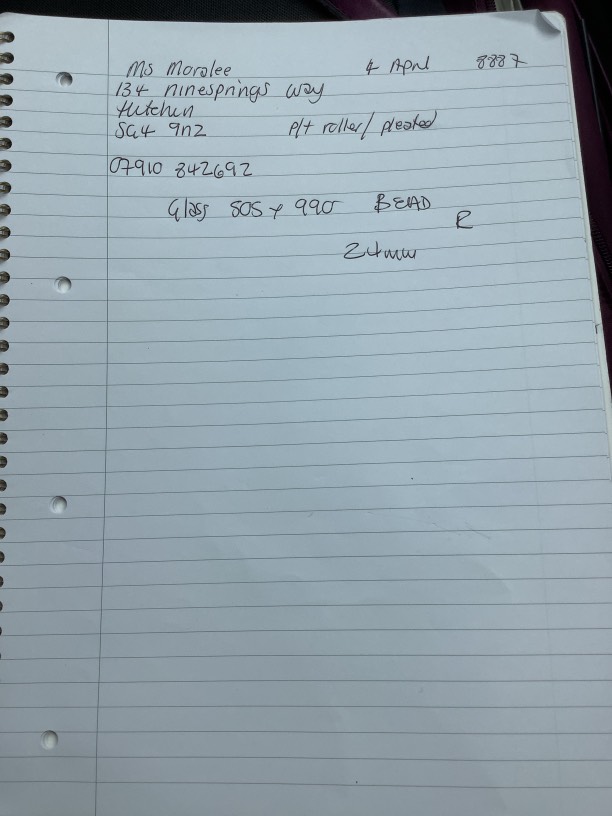 Ms Moralee 4 April 8887
134 ninesprings way
Hitchin
SG4 9n2 p/t roller/pleated
07910 842692
Glass 805 x 990 BEAD
R
24mm